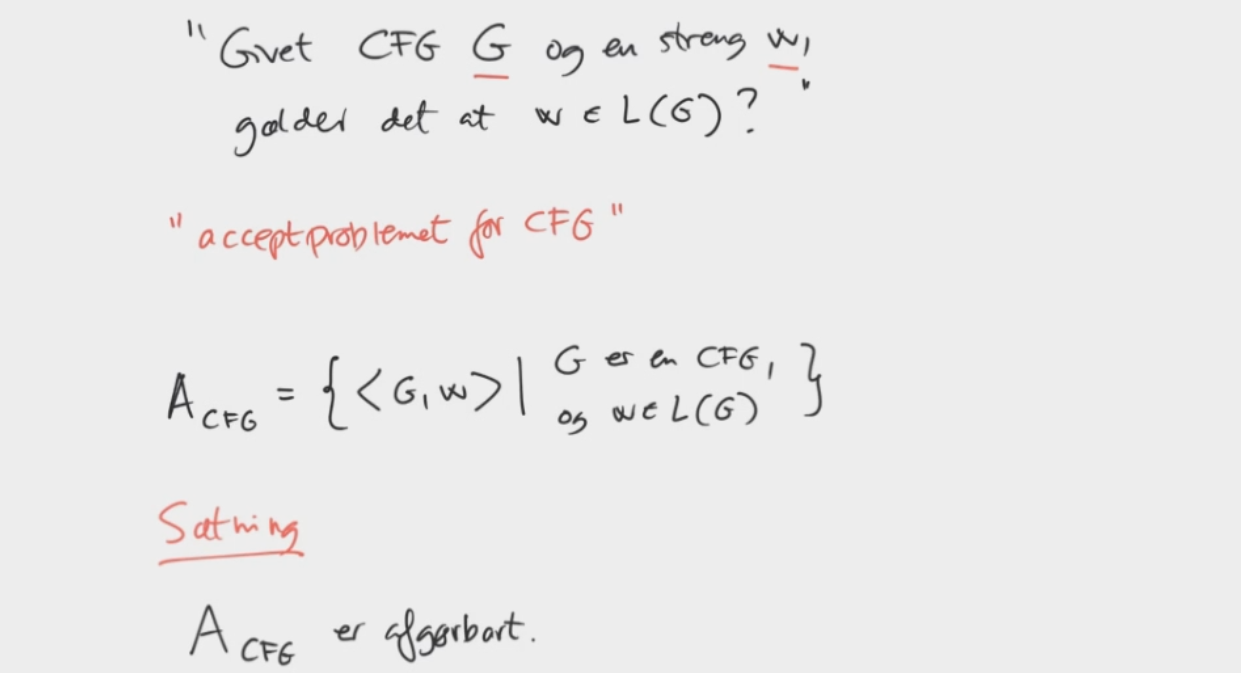 "Givet CFG G og en streng w,
gælder det at w ∈ L(G)?"
"acceptproblemet for CFG"
A_CFG = { <G, w> | G er en CFG, og w ∈ L(G) }
Sætning
A_CFG er afgørbart.